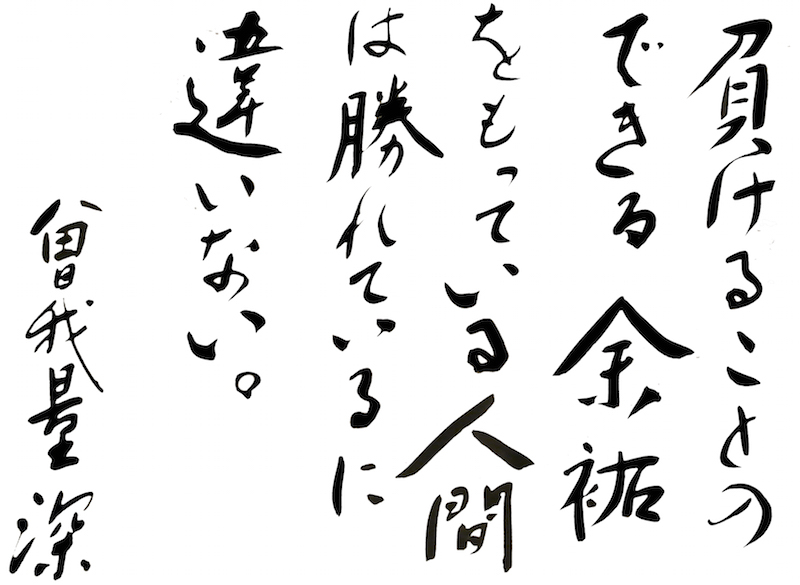 負けることの
できる余祐
をもっている人間
は勝れているに
違いない。
曾我量深